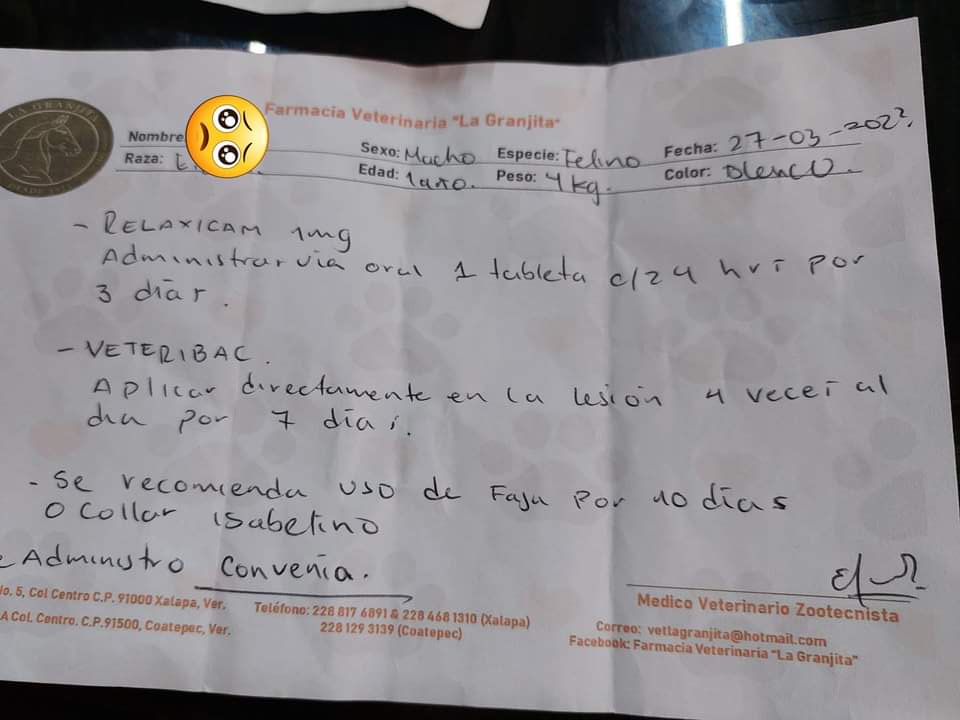 LA GRANJITA
Farmacia Veterinaria "La Granjita"
Nombre
Sexo: Macho Especie: Felino Fecha: 27-03-2022.
Raza:
Edad: 1 año. Peso: 4 kg. Color: Blanco.
- RELAXICAM 1mg
Administrar via oral 1 tableta c/24 hrs por
3 días.
- VETERIBAC.
Aplicar directamente en la lesión 4 veces al
día por 7 días.
- Se recomienda uso de Faja por 10 días
o collar isabelino
Administro Convenia.
No. 5, Col Centro C.P. 91000 Xalapa, Ver.
A Col. Centro. C.P.91500, Coatepec, Ver.
Teléfono: 228 817 6891 & 228 468 1310 (Xalapa)
228 129 3139 (Coatepec)
Medico Veterinario Zootecnista
Correo: vetlagranjita@hotmail.com
Facebook: Farmacia Veterinaria "La Granjita"